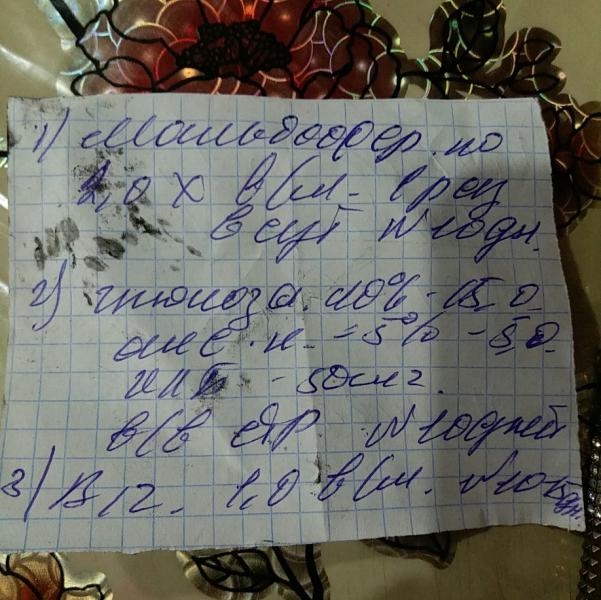 1) Мальтофер. по
2,0 х в/м. 1 раз
в сут N 10 дн.
2) глюкоза 10% - 15,0
асс. к. - 5% - 5,0
- 50 мг.
в/в стр. N 10 дней
3) B12. 1,0 в/м. N 10 дн.